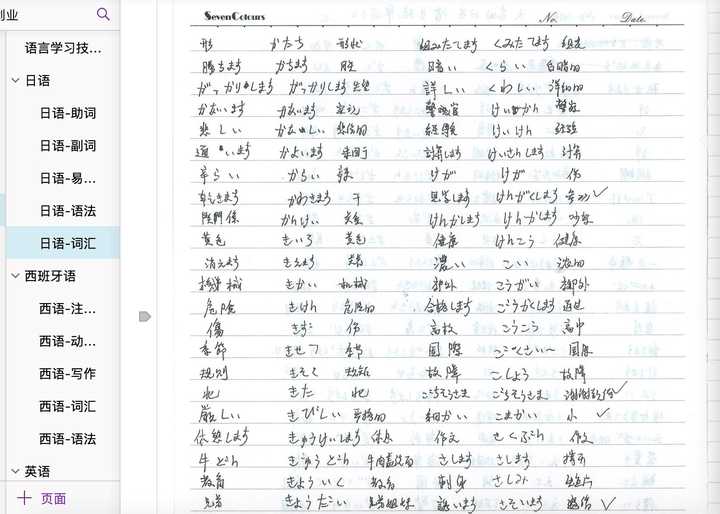 创业
语言学习技...
日语
日语-助词
日语-副词
日语-易...
日语-语法
日语-词汇
西班牙语
西语-注...
西语-动...
西语-写作
西语-词汇
西语-语法
英语
页面
SevenColours
No.
Date.
形 かたち 形状 組みたてます くみたてます
勝ちます かちます 暗い くらい
がっかりします がっかりします 詳しい くわしい 详细的
かないます かないます 警察官 けいかん 警察
悲しい かなしい 悲伤的 経験 けいけん 经验
通います かよいます 計算します けいさんします 计算
辛らい からい 辣 けが けが 伤
乾きます かわきます 干 見学します けんがくします
関係 かんけい 关系 けんかします けんかします 吵架
黄色 きいろ 黄色 健康 けんこう 健康
消えます きえます 濃い こい 浓的
機械 きかい 机械 郊外 こうがい 郊外
危険 きけん 危险的 合格します ごうかくします
傷 きず 伤 高校 こうこう 高中
季節 きせつ 季节 国際 こくさい〜 国际
規則 きそく 规则 故障 こしょう 故障
北 きた 北 ごちそうさま ごちそうさま
厳しい きびしい 严格的 細かい こまかい 小
休憩します きゅうけいします 休息 作文 さくぶん 作文
牛どん ぎゅうどん さします さします
教育 きょういく 教育 刺身 さしみ
兄弟 きょうだい 兄弟姐妹 誘います さそいます 邀请